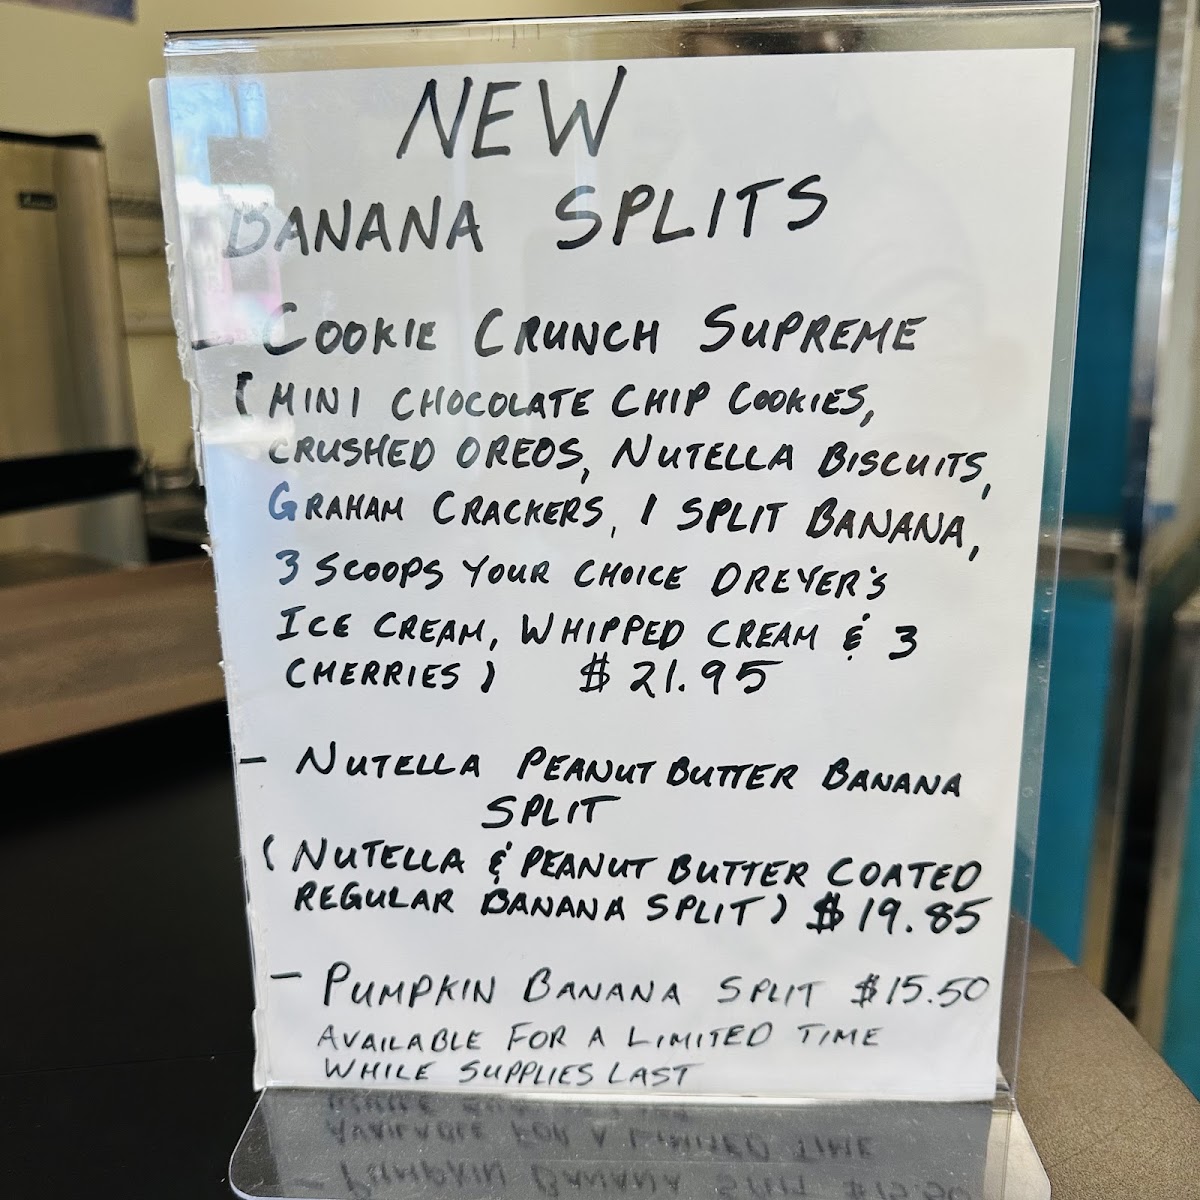 NEW
BANANA SPLITS
- COOKIE CRUNCH SUPREME
(MINI CHOCOLATE CHIP COOKIES,
CRUSHED OREOS, NUTELLA BISCUITS,
GRAHAM CRACKERS, 1 SPLIT BANANA,
3 SCOOPS YOUR CHOICE DREYER'S
ICE CREAM, WHIPPED CREAM & 3
CHERRIES) $21.95
- NUTELLA PEANUT BUTTER BANANA
SPLIT
(NUTELLA & PEANUT BUTTER COATED
REGULAR BANANA SPLIT) $19.85
- PUMPKIN BANANA SPLIT $15.50
AVAILABLE FOR A LIMITED TIME
WHILE SUPPLIES LAST